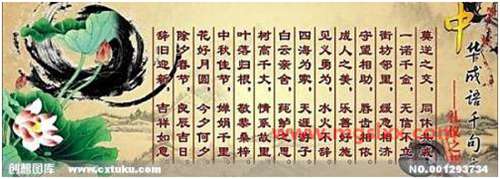 中华成语千句文
——礼仪之
莫逆之交，同休
一诺千金，无信不立
街坊邻里，缓急相济
守望相助，唇齿相依
成人之美，乐善好施
见义勇为，水火不辞
四海为家，天涯游子
白云亲舍，莼鲈之思
树高千丈，情系故里
叶落归根，敬恭桑梓
中秋佳节，婵娟千里
花好月圆，今夕何夕
除夕春节，良辰吉日
辞旧迎新，吉祥如意
创想图库 www.cxtuku.com
NO.001293734